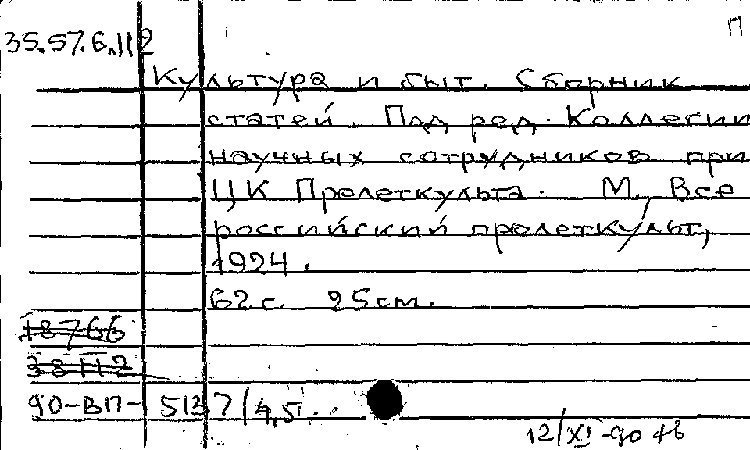 П
35.57.6.112
Культура и быт. Сборник
статей. Под ред. Коллегии
научных сотрудников при
ЦК Пролеткульта. М., Все
российский пролеткульт,
1924.
62 с. 25 см.
18766
38112
90-ВП-5137/4,5.
12/XI-90